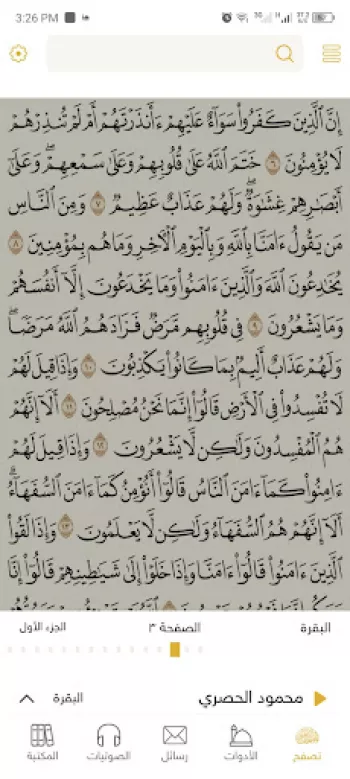 3:26 PM
إِنَّ ٱلَّذِينَ كَفَرُوا۟ سَوَآءٌ عَلَيْهِمْ ءَأَنذَرْتَهُمْ أَمْ لَمْ تُنذِرْهُمْ
لَا يُؤْمِنُونَ ٦ خَتَمَ ٱللَّهُ عَلَىٰ قُلُوبِهِمْ وَعَلَىٰ سَمْعِهِمْ ۖ وَعَلَىٰٓ
أَبْصَٰرِهِمْ غِشَٰوَةٌ ۖ وَلَهُمْ عَذَابٌ عَظِيمٌ ٧ وَمِنَ ٱلنَّاسِ
مَن يَقُولُ ءَامَنَّا بِٱللَّهِ وَبِٱلْيَوْمِ ٱلْءَاخِرِ وَمَا هُم بِمُؤْمِنِينَ ٨
يُخَٰدِعُونَ ٱللَّهَ وَٱلَّذِينَ ءَامَنُوا۟ وَمَا يَخْدَعُونَ إِلَّآ أَنفُسَهُمْ
وَمَا يَشْعُرُونَ ٩ فِى قُلُوبِهِم مَّرَضٌ فَزَادَهُمُ ٱللَّهُ مَرَضًا ۖ
وَلَهُمْ عَذَابٌ أَلِيمٌۢ بِمَا كَانُوا۟ يَكْذِبُونَ ١٠ وَإِذَا قِيلَ لَهُمْ
لَا تُفْسِدُوا۟ فِى ٱلْأَرْضِ قَالُوٓا۟ إِنَّمَا نَحْنُ مُصْلِحُونَ ١١ أَلَآ إِنَّهُمْ
هُمُ ٱلْمُفْسِدُونَ وَلَٰكِن لَّا يَشْعُرُونَ ١٢ وَإِذَا قِيلَ لَهُمْ
ءَامِنُوا۟ كَمَآ ءَامَنَ ٱلنَّاسُ قَالُوٓا۟ أَنُؤْمِنُ كَمَآ ءَامَنَ ٱلسُّفَهَآءُ ۗ
أَلَآ إِنَّهُمْ هُمُ ٱلسُّفَهَآءُ وَلَٰكِن لَّا يَعْلَمُونَ ١٣ وَإِذَا لَقُوا۟
ٱلَّذِينَ ءَامَنُوا۟ قَالُوٓا۟ ءَامَنَّا وَإِذَا خَلَوْا۟ إِلَىٰ شَيَٰطِينِهِمْ قَالُوٓا۟ إِنَّا
البقرة الصفحة ٣ الجزء الأول
محمود الحصري البقرة
تصفح الأدوات رسائل الصوتيات المكتبة